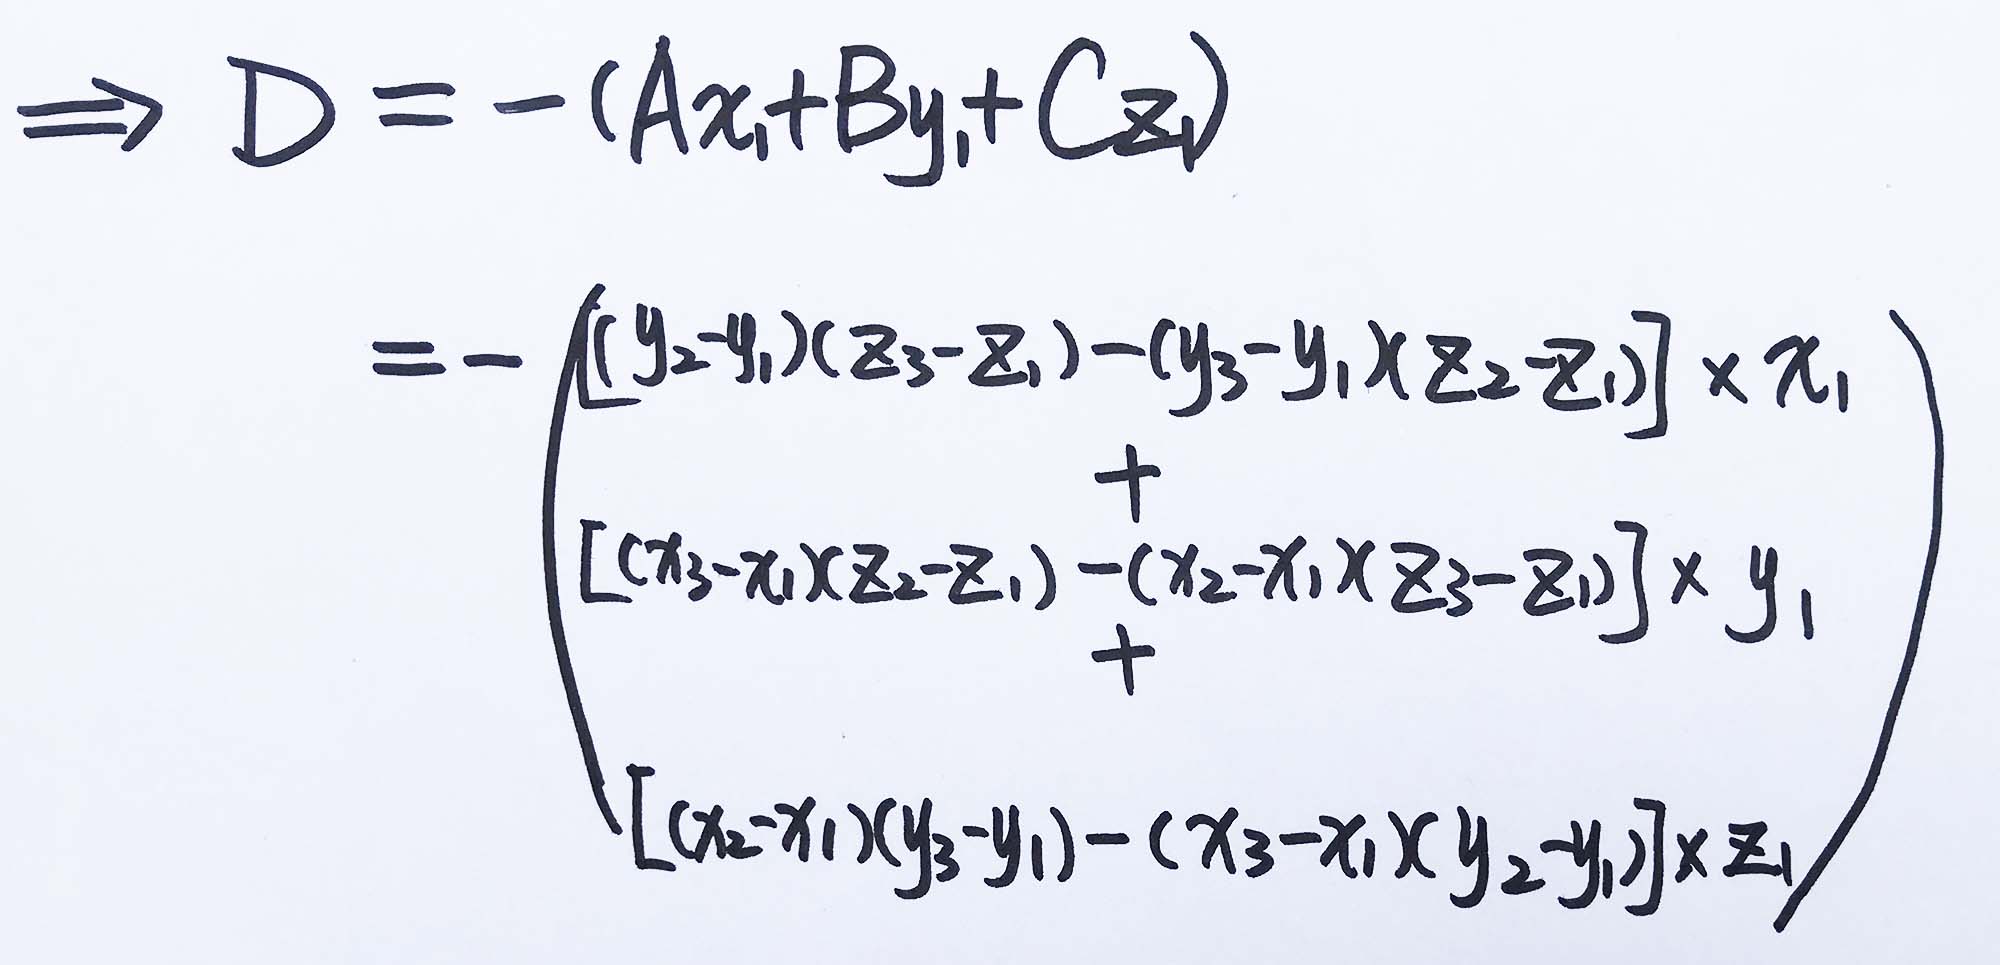 ⇒ D = -(Ax₁+By₁+Cz₁)
= -([(y₂-y₁)(z₃-z₁)-(y₃-y₁)(z₂-z₁)] × x₁
+
[(x₃-x₁)(z₂-z₁)-(x₂-x₁)(z₃-z₁)] × y₁
+
[(x₂-x₁)(y₃-y₁)-(x₃-x₁)(y₂-y₁)] × z₁)